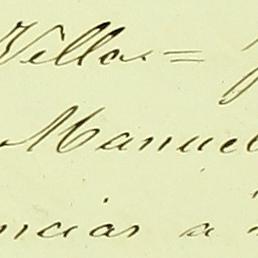 Villa.=
Manuel
ncias a